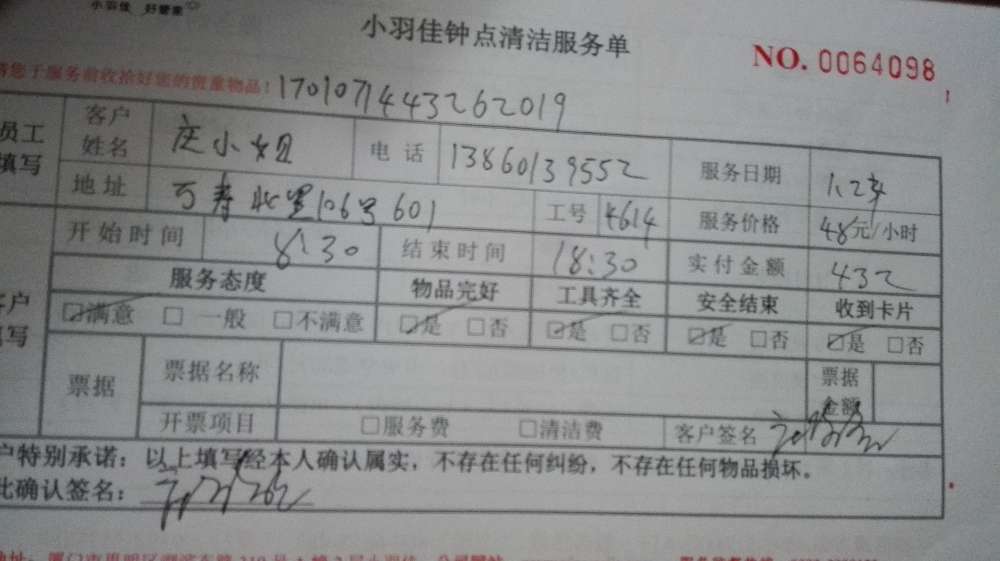 小羽佳 好管家
小羽佳钟点清洁服务单
NO. 0064098
请您于服务前收拾好您的贵重物品! 1701071443262019
员工填写 客户姓名 庄小姐 电话 13860139552 服务日期
地址 万寿北里106号601 工号 4614 服务价格 48元/小时
开始时间 8:30 结束时间 18:30 实付金额 432
服务态度 物品完好 工具齐全 安全结束 收到卡片
☑满意 □一般 □不满意 ☑是 □否 ☑是 □否 ☑是 □否 ☑是 □否
客户填写
票据 票据名称 票据金额
开票项目 □服务费 □清洁费 客户签名
户特别承诺：以上填写经本人确认属实，不存在任何纠纷，不存在任何物品损坏。
此确认签名：